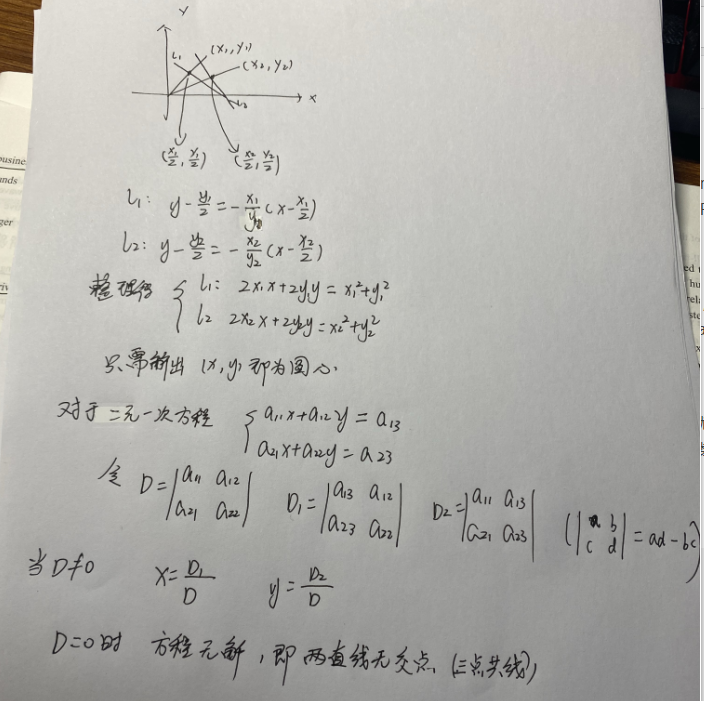 Y
L₁
(x₁, y₁)
(x₂, y₂)
x
L₂
(x₁/2, y₁/2) (x₂/2, y₂/2)
L₁: y - y₁/2 = - x₁/y₁ (x - x₁/2)
L₂: y - y₂/2 = - x₂/y₂ (x - x₂/2)
整理得 { L₁: 2x₁x + 2y₁y = x₁² + y₁²
L₂ 2x₂x + 2y₂y = x₂² + y₂²
只需解出 (x, y) 即为圆心.
对于二元一次方程 { a₁₁x + a₁₂y = a₁₃
a₂₁x + a₂₂y = a₂₃
令 D = |a₁₁ a₁₂| D₁ = |a₁₃ a₁₂| D₂ = |a₁₁ a₁₃| (|a b| = ad - bc)
|a₂₁ a₂₂| |a₂₃ a₂₂| |a₂₁ a₂₃| |c d|
当 D ≠ 0 x = D₁/D y = D₂/D
D = 0 时 方程无解, 即两直线无交点 (三点共线)
busine
nds
ger